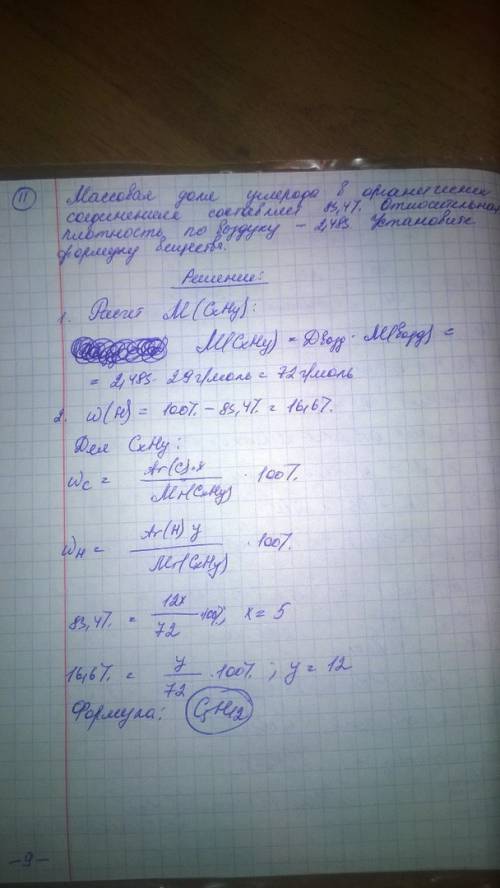 11
Массовая доля углерода в органическом
соединении составляет 83,4%. Относительная
плотность по воздуху – 2,483. Установите
формулу вещества.
Решение:
1. Расчет M(CxHy):
M(CxHy) = Dвозд · M(возд) =
= 2,483 · 29 г/моль = 72 г/моль
2. w(H) = 100% - 83,4% = 16,6%.
Для CxHy:
wC = Ar(C)·x / Mr(CxHy) · 100%.
wH = Ar(H) y / Mr(CxHy) · 100%.
83,4% = 12x / 72 · 100%; x = 5
16,6% = y / 72 · 100%; y = 12
Формула: C5H12
-9-